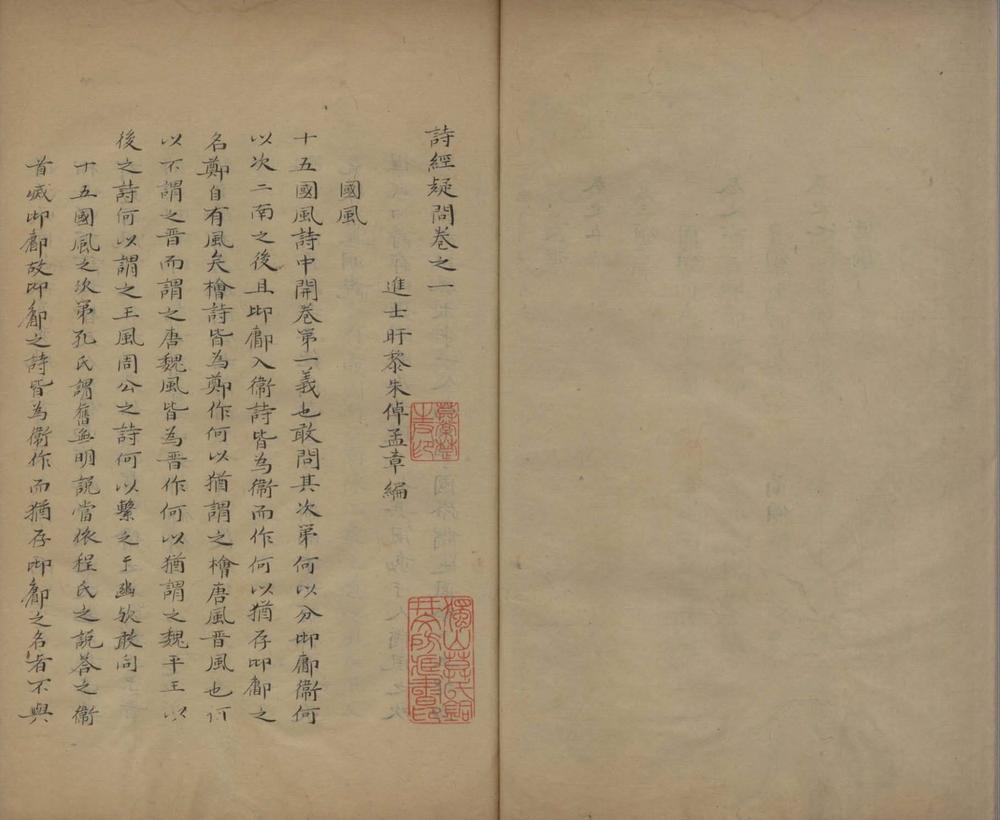 詩經疑問卷之一
進士盱黎朱倬孟章編
國風
十五國風詩中開卷第一義也敢問其次第何以分邶鄘衞何
以次二南之後且邶鄘入衞詩皆為衞而作何以猶存邶鄘之
名鄭自有風矣檜詩皆為鄭作何以猶謂之檜唐風晋風也何
以不謂之晋而謂之唐魏風皆為晋作何以猶謂之魏平王以
後之詩何以謂之王風周公之詩何以繫之于豳欤敢问
十五國風之次第孔氏謂舊無明説當依程氏之説答之衞
首滅邶鄘故邶鄘之詩皆為衞作而猶存邶鄘之名者不與
莫氏銅